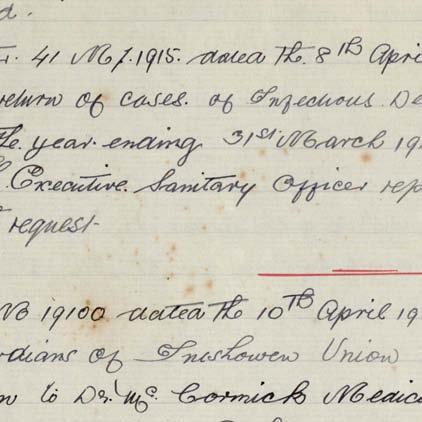 d.
r. 41 M/.1915. dated the. 8th April
return of cases. of Infectious De
The. year. ending 31st March 19
Executive. Sanitary Officer rep
request-
No 19100 dated the 10th April 19
rdians of Inishowen Union
n to Dr. Mc. Cormick Medica